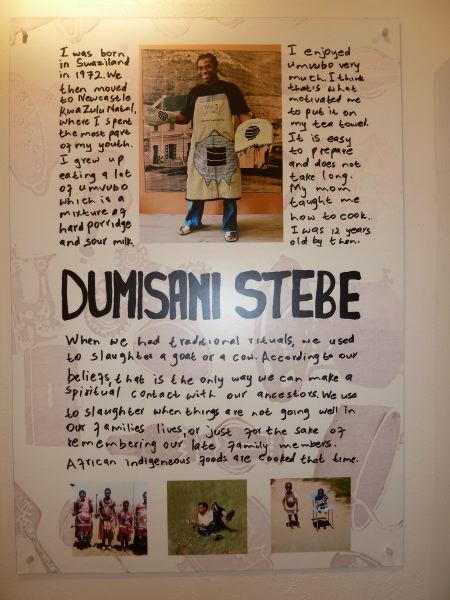 I was born
in Swaziland
in 1972. We
then moved
to Newcastle
KwaZulu Natal,
where I spent
the most part
of my youth.
I grew up
eating a lot
of umvubo
which is a
mixture of
hard porridge
and sour milk.
I enjoyed
umvubo very
much. I think
that is what
motivated me
to put it on
my tea towel.
It is easy
to prepare
and does not
take long.
My mom
taught me
how to cook..
I was 12 years
old by then.
DUMISANI STEBE
When we had traditional rituals, we used
to slaughter a goat or a cow. According to our
beliefs, that is the only way we can make a
spiritual contact with our ancestors. We use
to slaughter when things are not going well in
our families lives, or just for the sake of
remembering our late family members.
African indigenous foods are cooked that time.